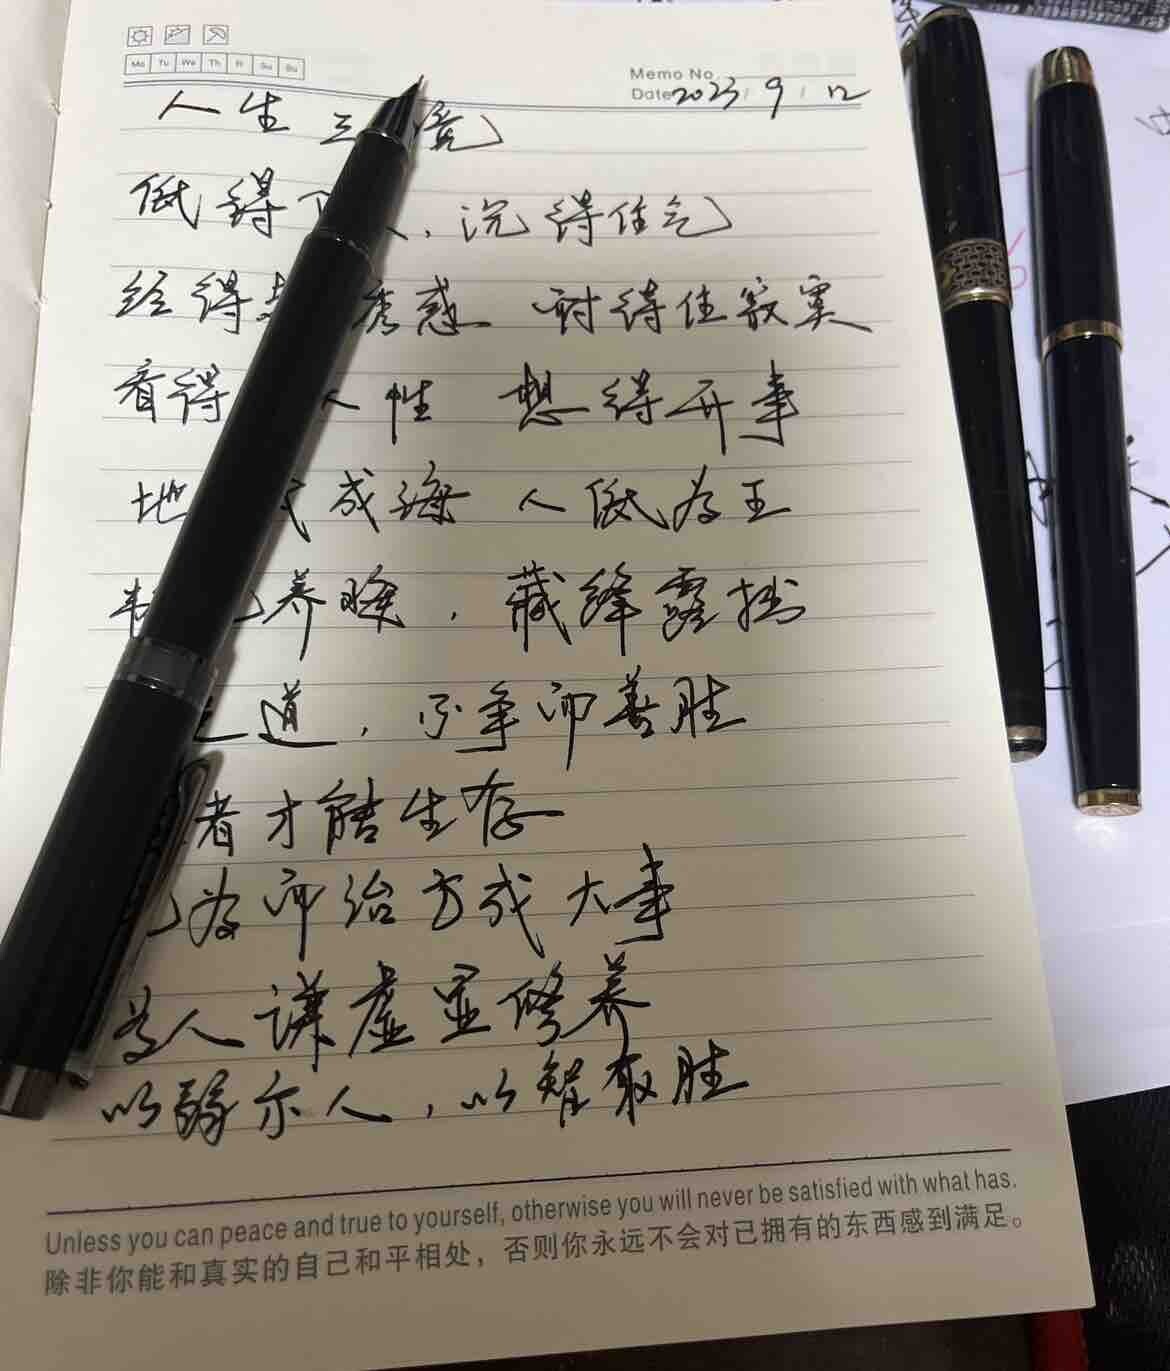 Mo Tu We Th Fr Sa Su
Memo No.
Date 2023 / 9 / 12
人生三境
低得下头，沉得住气
经得起诱惑 耐得住寂寞
看得 人性 想得开事
地低成海 人低为王
韬光养晦，藏锋露拙
之道，不争而善胜
者才能生存
为而治方成大事
为人谦虚显修养
以弱示人，以智取胜
Unless you can peace and true to yourself, otherwise you will never be satisfied with what has.
除非你能和真实的自己和平相处，否则你永远不会对已拥有的东西感到满足。